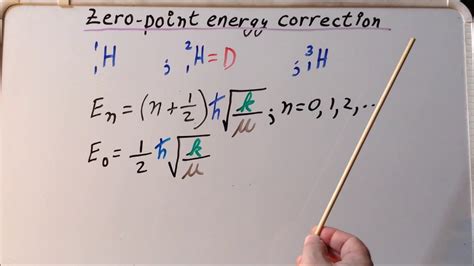 Zero-point energy correction
¹₁H ; ²₁H = D ; ³₁H
Eₙ = (n + 1/2) ħ √(k/μ) ; n = 0, 1, 2, ..
E₀ = 1/2 ħ √(k/μ)